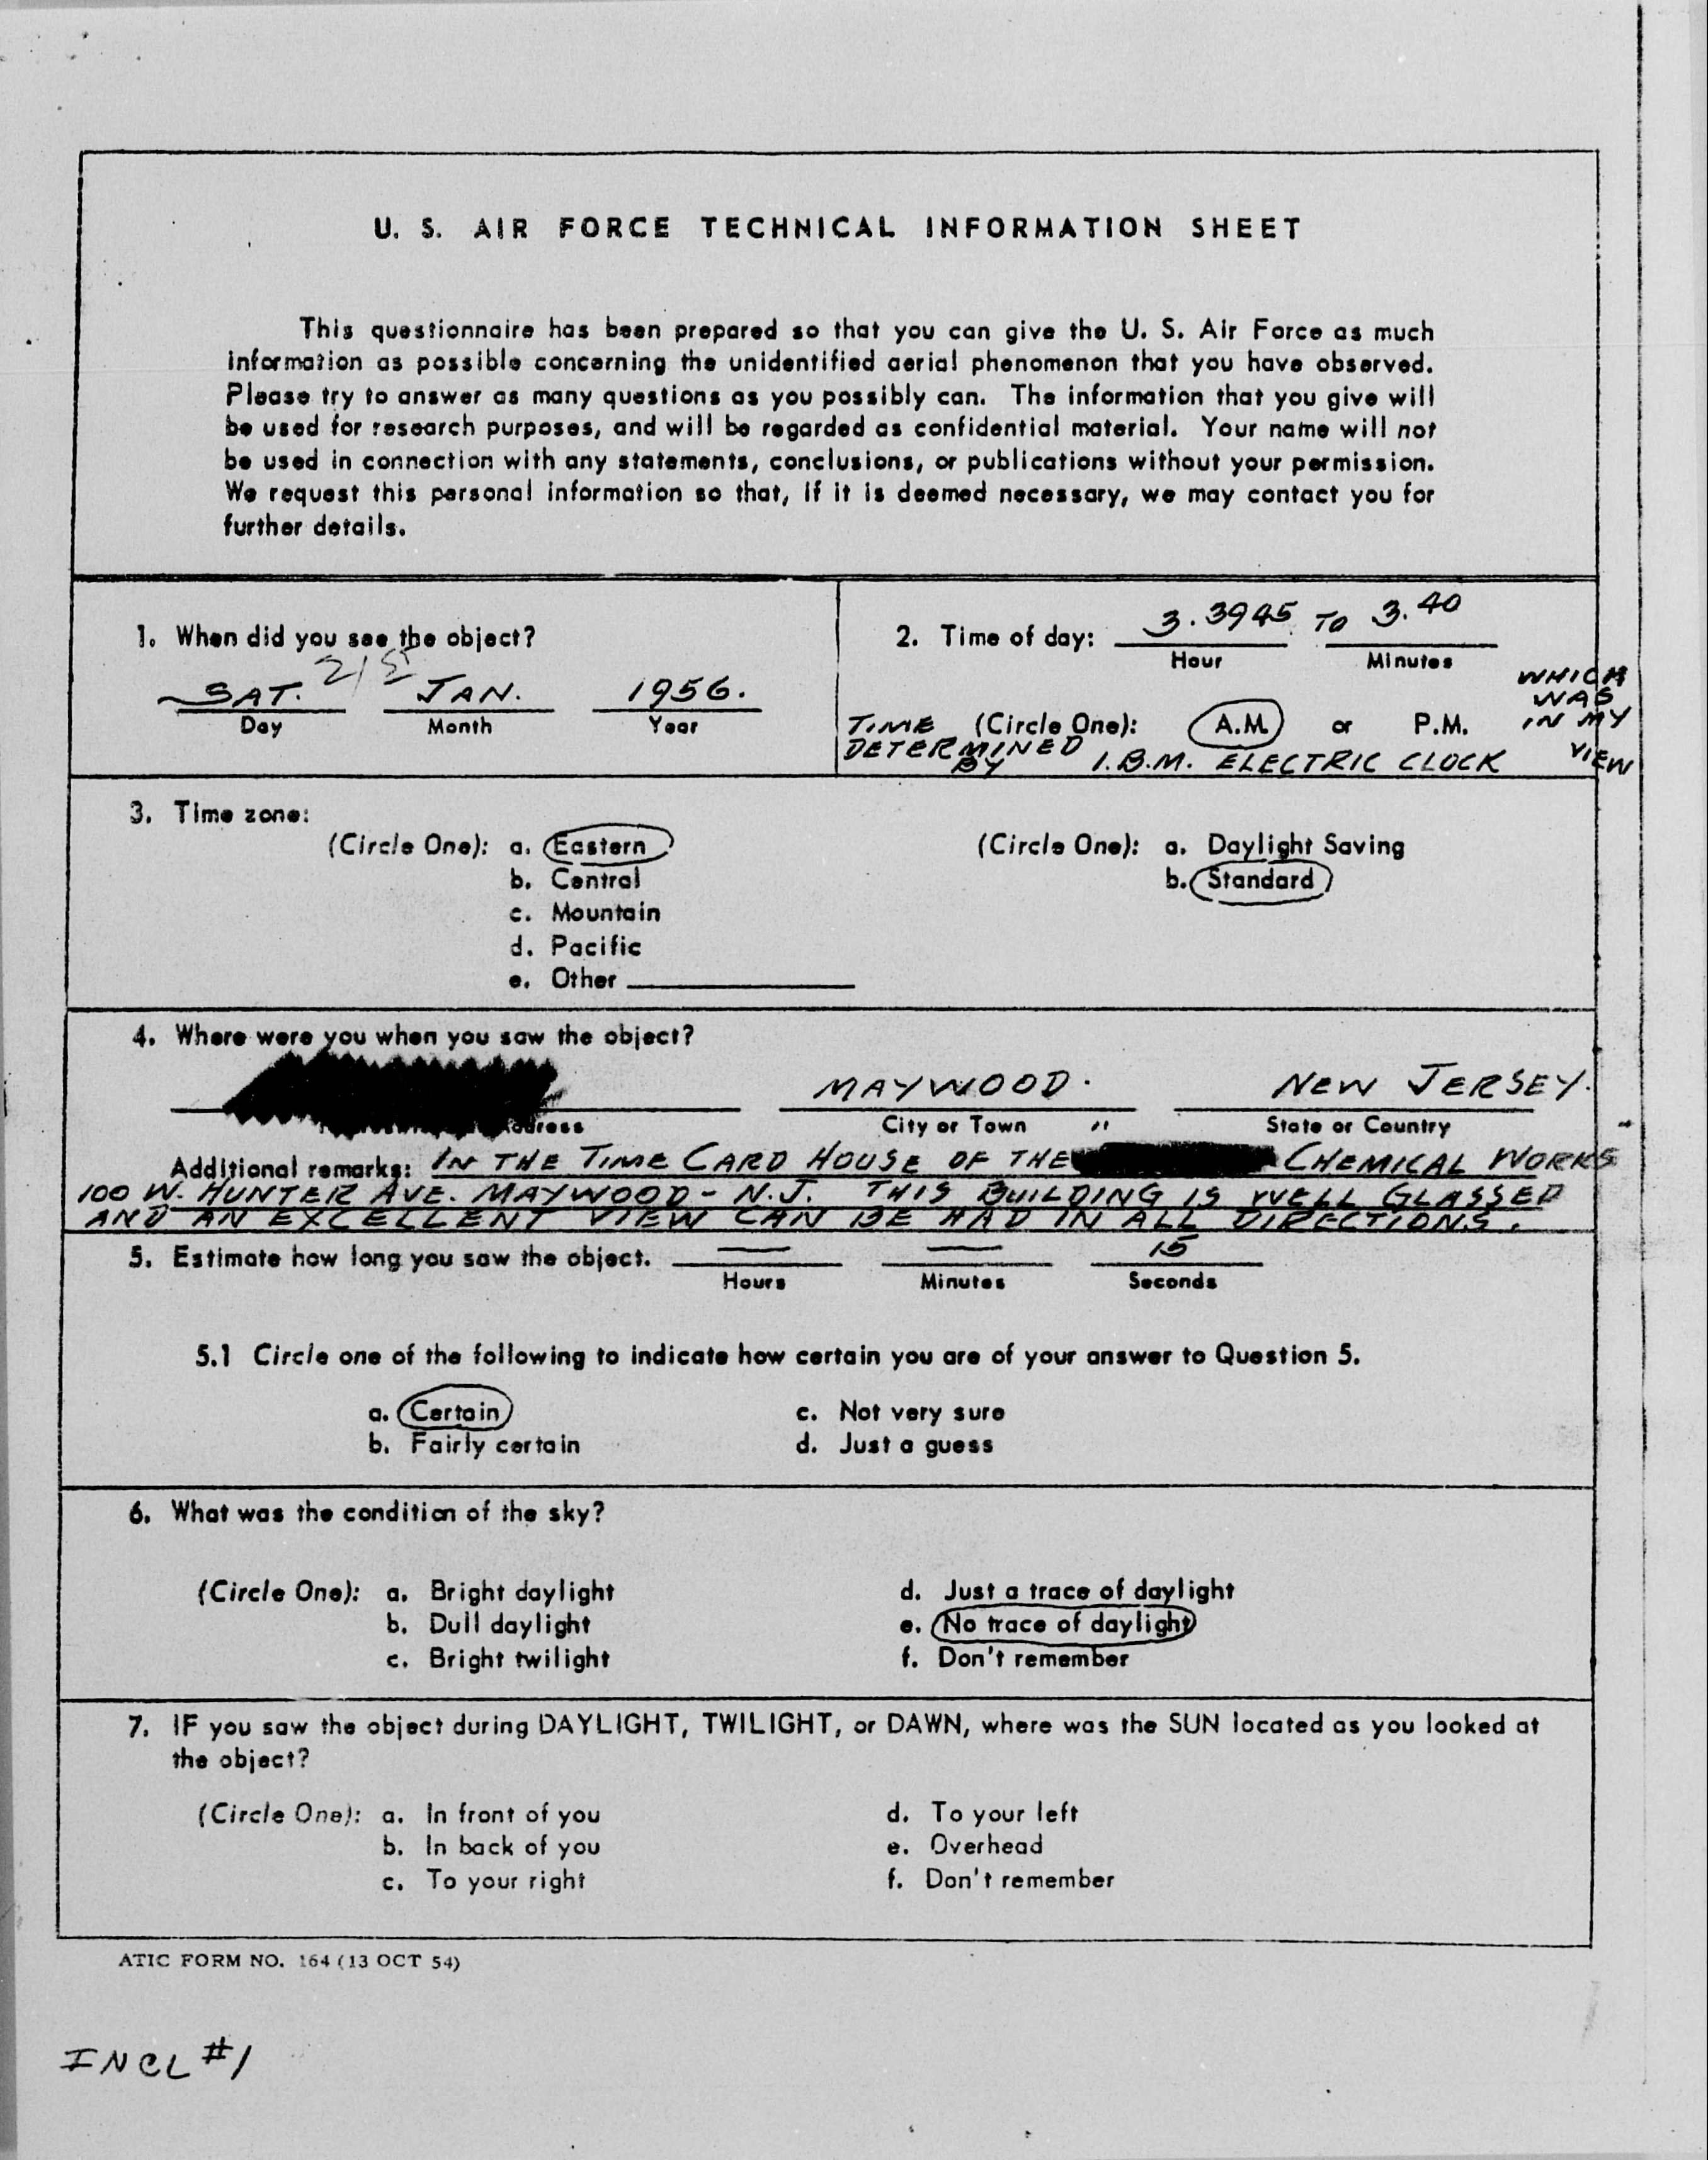 U. S. AIR FORCE TECHNICAL INFORMATION SHEET
This questionnaire has been prepared so that you can give the U. S. Air Force as much
information as possible concerning the unidentified aerial phenomenon that you have observed.
Please try to answer as many questions as you possibly can. The information that you give will
be used for research purposes, and will be regarded as confidential material. Your name will not
be used in connection with any statements, conclusions, or publications without your permission.
We request this personal information so that, if it is deemed necessary, we may contact you for
further details.
1. When did you see the object?
21st
SAT. JAN. 1956.
Day Month Year
2. Time of day: 3.3945 TO 3.40
Hour Minutes
(Circle One): A.M. or P.M.
TIME DETERMINED BY I.B.M. ELECTRIC CLOCK
WHICH
WAS
IN MY
VIEW
3. Time zone:
(Circle One): a. Eastern
b. Central
c. Mountain
d. Pacific
e. Other
(Circle One): a. Daylight Saving
b. Standard
4. Where were you when you saw the object?
MAYWOOD. NEW JERSEY.
City or Town State or Country
Additional remarks: IN THE TIME CARD HOUSE OF THE CHEMICAL WORKS
100 W. HUNTER AVE. MAYWOOD - N.J. THIS BUILDING IS WELL GLASSED
AND AN EXCELLENT VIEW CAN BE HAD IN ALL DIRECTIONS.
5. Estimate how long you saw the object. — — 15
Hours Minutes Seconds
5.1 Circle one of the following to indicate how certain you are of your answer to Question 5.
a. Certain c. Not very sure
b. Fairly certain d. Just a guess
6. What was the condition of the sky?
(Circle One): a. Bright daylight d. Just a trace of daylight
b. Dull daylight e. No trace of daylight
c. Bright twilight f. Don't remember
7. IF you saw the object during DAYLIGHT, TWILIGHT, or DAWN, where was the SUN located as you looked at
the object?
(Circle One): a. In front of you d. To your left
b. In back of you e. Overhead
c. To your right f. Don't remember
ATIC FORM NO. 164 (13 OCT 54)
INCL #1